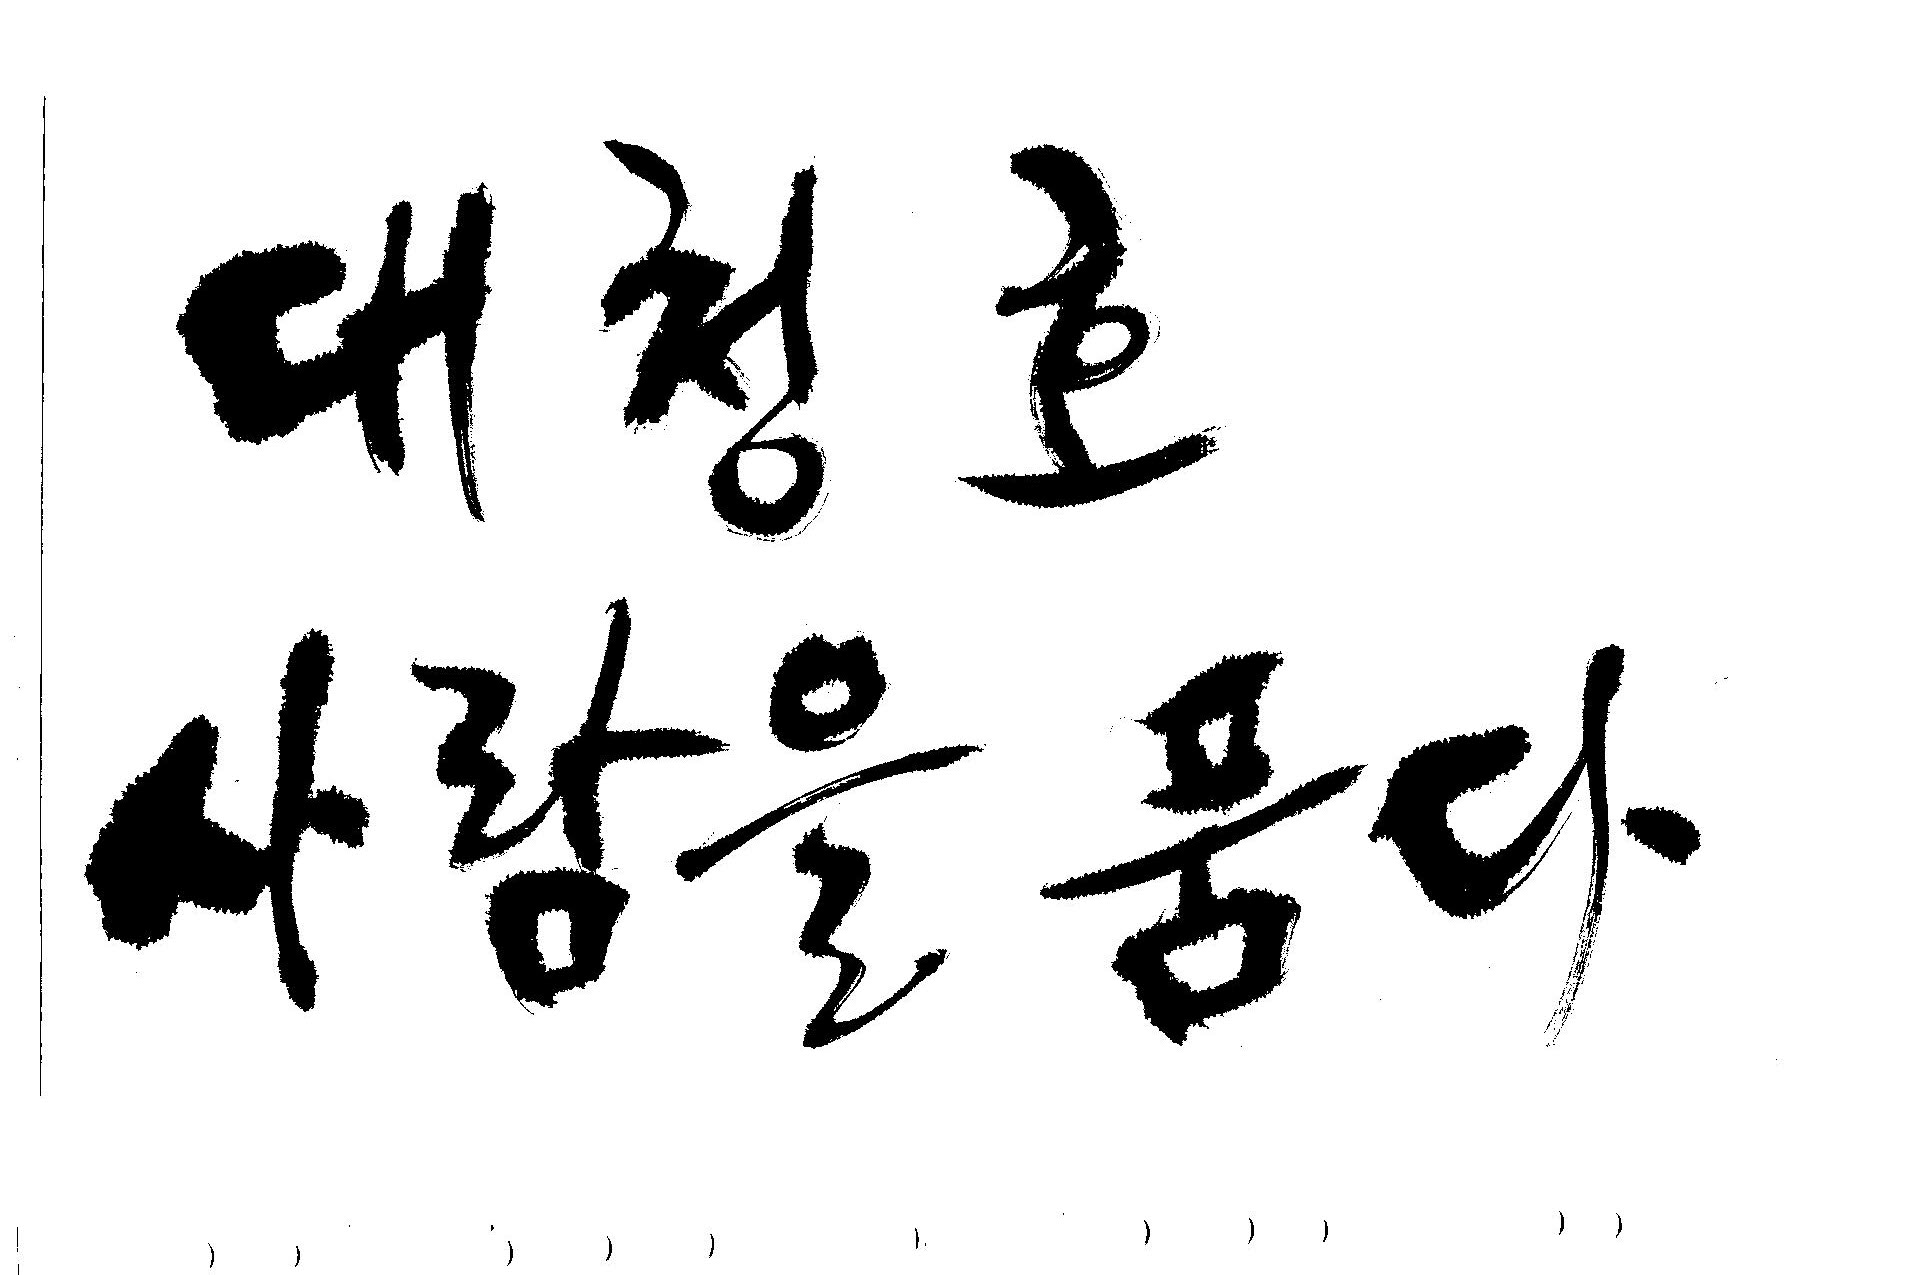 대청호
사람을 품다